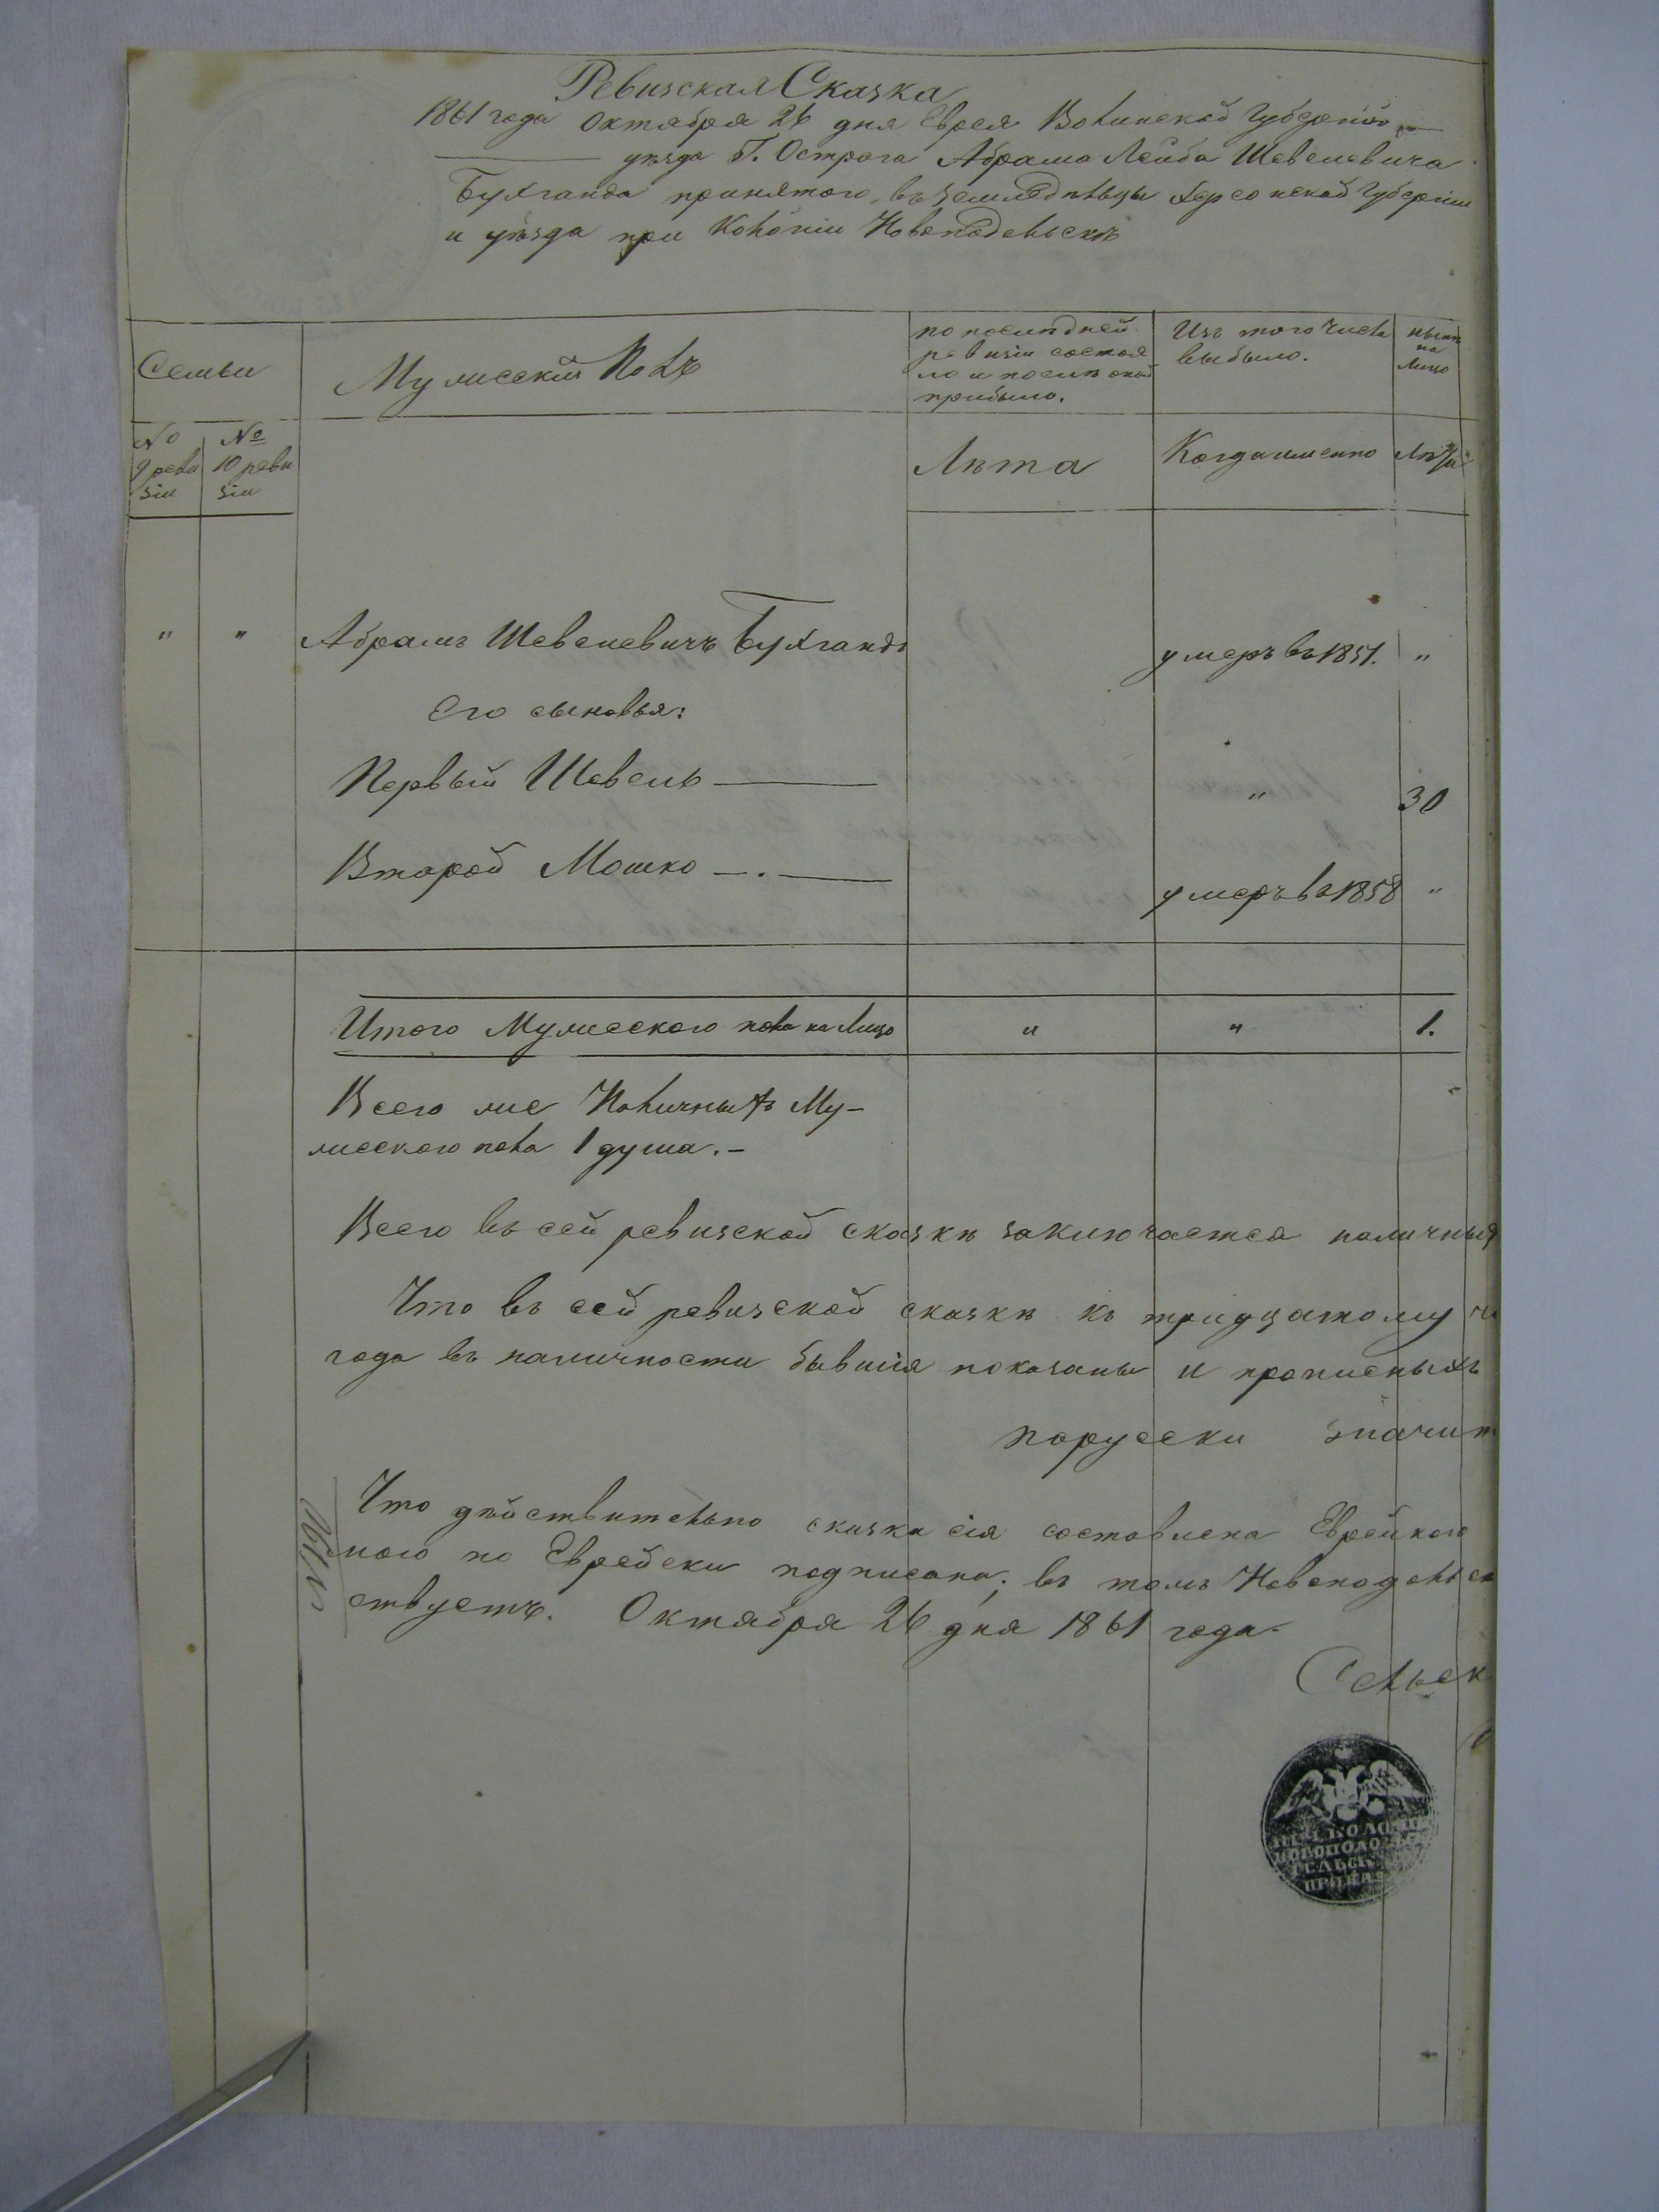 Ревизская Сказка
1861 года Октября 26 дня Еврея Волынской Губерніи
уѣзда Г. Острога Абрама Лейба Шевелевича
Бухганда принятого въ земледѣльцы Херсонской Губерніи
и уѣзда при Колоніи Новоподольскъ
Семьи
Мужескій Полъ
по послѣдней
ревизіи состоя
ло и послѣ оной
прибыло.
Изъ того числа
выбыло.
нынѣ
на
лицо
№
9 реви
зіи
№
10 реви
зіи
Лѣта
Когда именно
Лѣта
" " Абрамъ Шевелевичъ Бухгандъ умеръ въ 1851. "
Его сыновья:
Первый Шевель " 30
Второй Мошко умеръ въ 1858 "
Итого Мужескаго пола на лицо " " 1.
Всего же Наличныхъ Му-
жескаго пола 1 душа.-
Всего въ сей ревизской сказкѣ заключается наличныя
Что въ сей ревизской сказкѣ къ тридцатому
года въ наличности бывшія показаны и прописныхъ
порусски значит
Что дѣйствительно сказка сія составлена Еврейкого
ного по Еврейски подписана; въ томъ Новоподольск
ствуетъ. Октября 26 дня 1861 года.
Сельск
КОЛОНІИ
НОВОПОДОЛЬСК
СЕЛЬСК
ПРИКАЗ